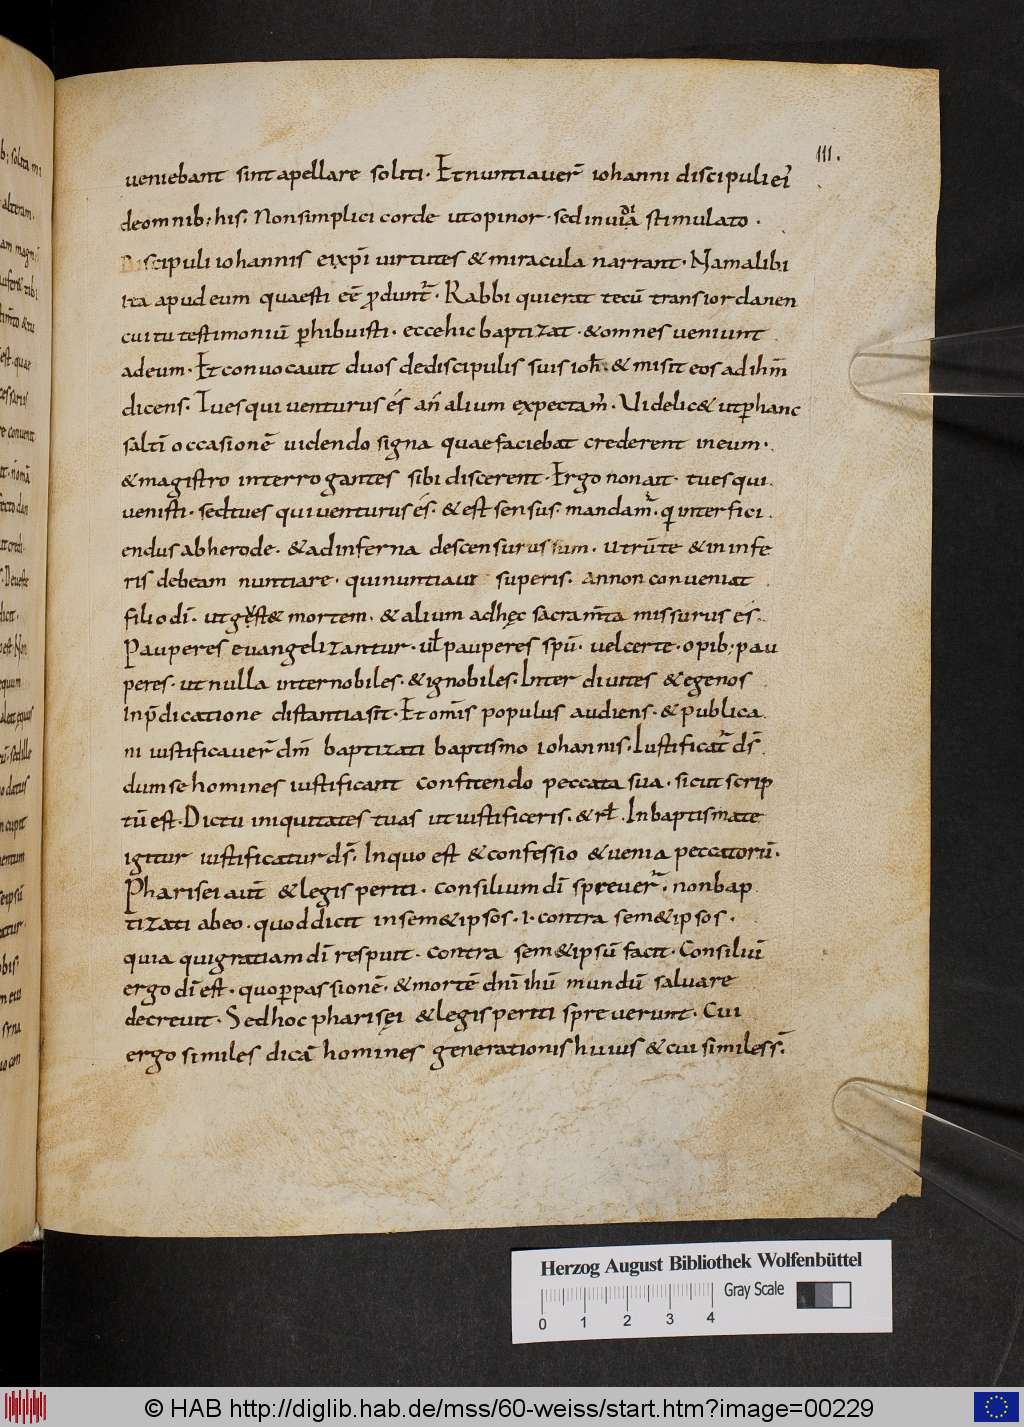 III.
veniebant sint apellare soliti. Et nuntiaver̄ iohanni discipuli ei'
de omnib; his. Non simplici corde ut opinor. sed invidia stimulato.
Discipuli iohannis ei xp̄i virtutes & miracula narrant. Nam alibi
ita apud eum quaesti eē ꝓdunt̄. Rabbi qui erat tecū trans iordanen
cui tu testimoniū ꝑhibuisti. ecce hic baptizat. & omnes veniunt
ad eum. Et convocavit duos de discipulis suis ioh̄. & misit eos ad ihm̄
dicens. Tu es qui venturus és an̄ alium expectam̄. Videlic& ut ꝑ hanc
saltī occasionē videndo signa quae faciebat crederent in eum.
& magistro interrogantes sibi discerent. Ergo non ait. tu es qui
venisti. sed tu es qui venturus és. & est sensus. mandam̄. q interfici
endus ab herode. & ad inferna descensurus sum. utrū te & in infe
ris debeam nuntiare. qui nuntiavi superis. an non conveniat
filio dī. ut gust& mortem. & alium ad hęc sacram̄ta missurus és.
Pauperes evangelizantur. ul̄ pauperes spū. vel certe. opib; pau
peres. ut nulla inter nobiles. & ignobiles. Inter divites & egenos
In p̄dicatione distantia sit. Et omīs populus audiens. & publica
ni iustificaver̄ dm̄ baptizati baptismo iohannis. Iustificat̄ ds̄.
dum se homines iustificant confitendo peccata sua. sicut scrip
tū est. Dic tu iniquitates tuas ut iustificeris. & rl̄. In baptismate
igitur iustificatur ds̄. In quo est & confessio & venia peccatorū.
Pharisei aut̄ & legis periti. consilium dī sprever̄. non bap
tizati ab eo. quod dicit in sem&ipsos. i. contra sem&ipsos.
quia qui gratiam dī respuit. contra sem&ipsū facit. Consiliū
ergo dī est. quo ꝑ passionē. & mortē dnī ihū mundū salvare
decrevit. Sed hoc pharisęi & legis periti spreverunt. Cui
ergo similes dicā homines generationis huius & cui similes s̄.
Herzog August Bibliothek Wolfenbüttel
Gray Scale
0 1 2 3 4
© HAB http://diglib.hab.de/mss/60-weiss/start.htm?image=00229